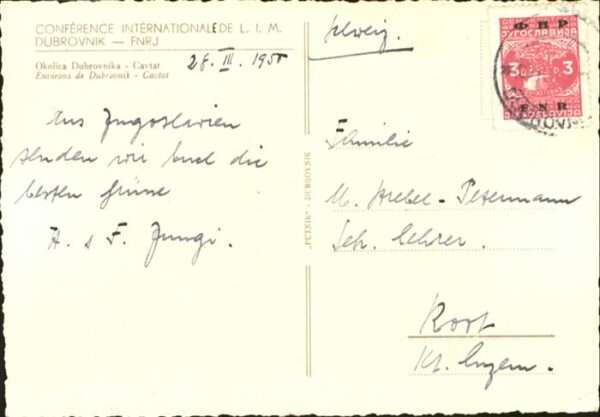 CONFÉRENCE INTERNATIONALE DE L. I. M.
DUBROVNIK — FNRJ
Okolica Dubrovnika - Cavtat
Environs de Dubrovnik - Cavtat
28. III. 1950
Aus Jugoslavien
senden wir Euch die
besten Grüsse
H. & F. Jungi.
"PUTNIK" - DUBROVNIK
Schweiz.
ФНР
ЈУГОСЛАВИЈА
3 3
FNR
JUGOSLAVIJA
Familie
M. Hebel - Petermann
Sek. Lehrer.
Root
Kt. Luzern.